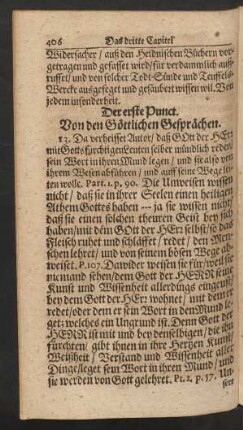 406 Das dritte Capitel
Widersacher / auß den Heidnischen Büchern vor-
getragen und gefasset wird / für verdammlich auß-
ruffet / und von solcher Todt-Sünde und Teuffels-
Wercke außgefeget und gesäubert wissen wil. Von
jedem insonderheit.
Der erste Punct.
Von den Götlichen Gesprächen.
13. Da verheisset Autor / daß GOtt der HErr
mit Gottsfürchtigen Leuten selber mündlich reden /
sein Wort in ihren Mund legen / und sie also von
ihrem Wesen abführen / und auff seine Wege lei-
ten wolle. Part. 1. p. 90. Die Unweisen wissen
nicht / daß sie in ihrer Seelen einen heiligen
Athem Gottes haben -- ja sie wissen nicht /
daß sie einen solchen theuren Geist bey sich
haben / mit dem GOtt der HErr selbst / so das
Fleisch ruhet und schläffet / redet / den Men-
schen lehret / und von seinem bösen Wege ab-
weiset. P. 107. Dawider weisen sie für / weil sie
niemand sehen / dem Gott der HERR seine
Kunst und Wissenheit allerdings eingeust /
bey dem Gott der HErr wohnet / mit dem er
redet / oder dem er sein Wort in den Mund
leget: welches ein Ungrund ist. Denn Gott der
HERR ist mit und bey denselbigen / die ihn
fürchten / gibt ihnen in ihre Hertzen Kunst /
Weißheit / Verstand und Wissenheit aller
Dinge / leget sein Wort in ihren Mund / und
sie werden von Gott gelehret. Pt. 2. p. 57. Un-
sere